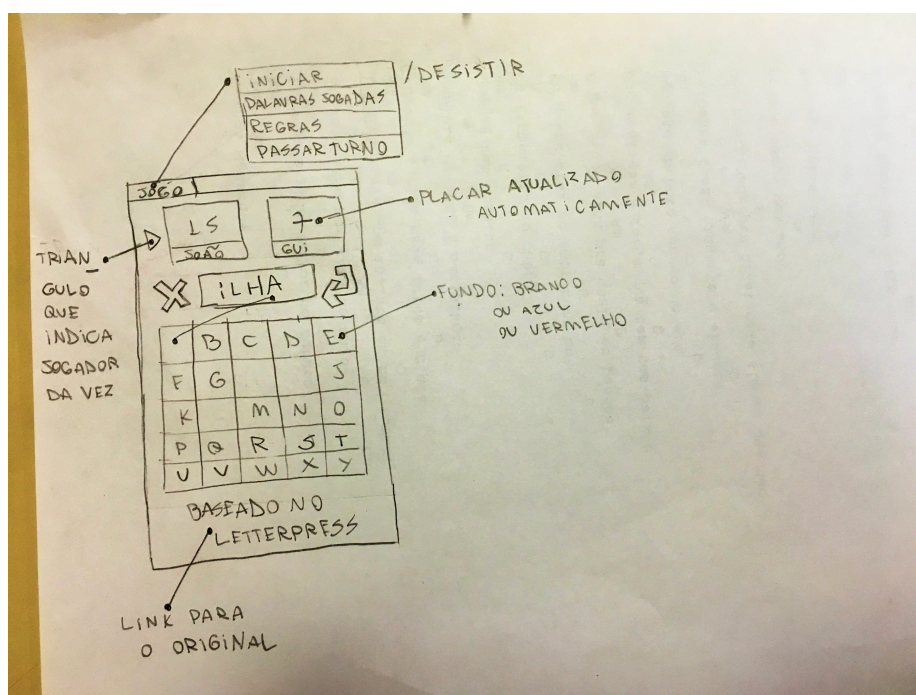 INICIAR /DESISTIR
PALAVRAS JOGADAS
REGRAS
PASSAR TURNO
JOGO
15 7
JOÃO GUI
PLACAR ATUALIZADO
AUTOMATICAMENTE
TRIAN_
GULO
QUE
INDICA
JOGADOR
DA VEZ
ILHA
FUNDO: BRANCO
OU AZUL
OU VERMELHO
B C D E
F G J
K M N O
P Q R S T
U V W X Y
BASEADO NO
LETTERPRESS
LINK PARA
O ORIGINAL